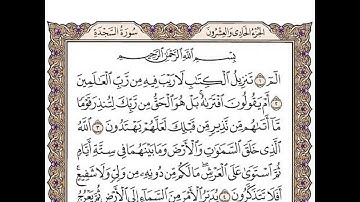 الجزء الحادي والعشرون
سورة السجدة
بِسْمِ اللَّهِ الرَّحْمَٰنِ الرَّحِيمِ
الٓمٓ ١ تَنزِيلُ الْكِتَابِ لَا رَيْبَ فِيهِ مِن رَّبِّ الْعَالَمِينَ
٢ أَمْ يَقُولُونَ افْتَرَاهُ بَلْ هُوَ الْحَقُّ مِن رَّبِّكَ لِتُنذِرَ قَوْمًا
مَّا أَتَاهُم مِّن نَّذِيرٍ مِّن قَبْلِكَ لَعَلَّهُمْ يَهْتَدُونَ ٣ اللَّهُ
الَّذِي خَلَقَ السَّمَاوَاتِ وَالْأَرْضَ وَمَا بَيْنَهُمَا فِي سِتَّةِ أَيَّامٍ
ثُمَّ اسْتَوَىٰ عَلَى الْعَرْشِ مَا لَكُم مِّن دُونِهِ مِن وَلِيٍّ وَلَا شَفِيعٍ
أَفَلَا تَتَذَكَّرُونَ ٤ يُدَبِّرُ الْأَمْرَ مِنَ السَّمَاءِ إِلَى الْأَرْضِ ثُمَّ يَعْرُجُ